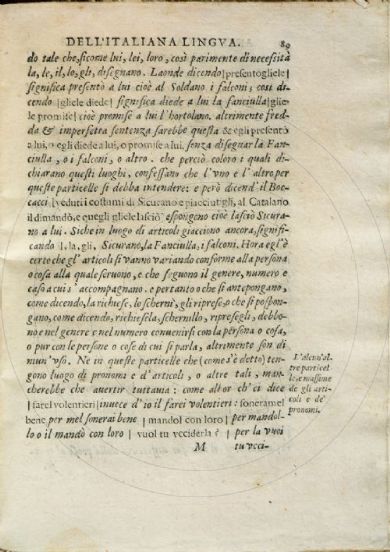 DELL'ITALIANA LINGVA. 89
do tale che, sicome lui, lei, loro, così parimente di necessità
la, le, il, lo, gli, disegnano. Laonde dicendo | presentogliele |
significa presentò a lui cioè al Soldano i falconi; così di-
cendo | gliele diede | significa diede a lui la fanciulla | glie-
le promise | cioè promise a lui l'hortolano. altrimente fred-
da & imperfetta sentenza sarebbe questa & egli presentò
a lui, o egli diede a lui, o promise a lui, senza disegnar la Fan-
ciulla, o i falconi, o altro. che perciò coloro i quali di-
chiarano questi luoghi, confessano che l'vno e l'altro per
queste particelle si debba intendere: e però dicend'il Boc-
cacci | veduti i costumi di Sicurano e piaciutigli, al Catalano
il dimandò, e quegli gliele lasciò | espongono cioè lasciò Sicura-
no a lui. Si che in luogo di articoli giacciono ancora, signifi-
cando il, la, gli, Sicurano, la Fanciulla, i falconi. Hora egl'è
certo che gl'articoli si vanno variando conforme alla persona
o cosa alla quale seruono, e che seguono il genere, numero e
caso a cui s'accompagnano. e pertanto o che si antepongano,
come dicendo, la richiese, lo schernì, gli riprese, o che si pospon-
gano, come dicendo, richiesela, schernillo, ripresegli, debbo-
no e nel genere e nel numero conuenirsi con la persona o cosa,
o pur con le persone o cose di cui si parla, altrimente son di
niun'vso. Ne in queste particelle che (come s'è detto) ten-
gono luogo di pronomi e d'articoli, o altre tali, man-
cherebbe che auertir tuttauia: come allor ch'ei dice
| farel volentieri | inuece d'io il farei volentieri: soneramel
bene per mel sonerai bene | mandol con loro | per mandol-
lo o il mandò con loro | vuol tu vcciderla è | per la vuoi
M tu vcci-
L'alcun'al-
tre particel-
le, e massime
de gli arti-
coli e de'
pronomi.